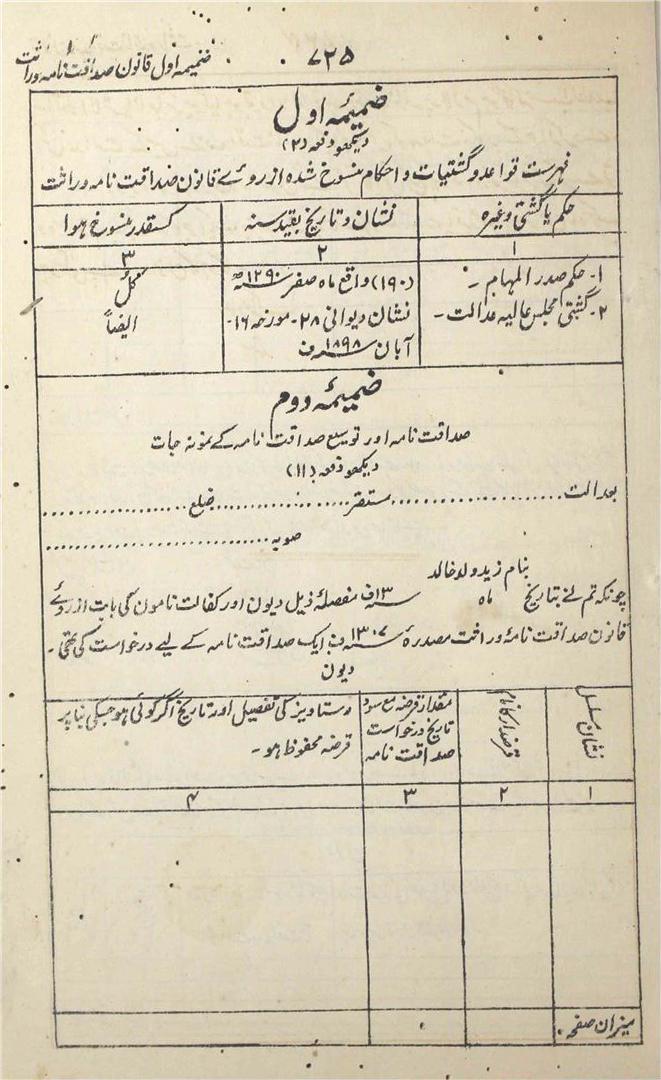 ۷۲۵
ضمیمہ اول قانون صداقت نامہ وراثت
ضمیمۂ اول
دیکھو دفعہ (۲)
فہرست قواعد و گشتیات و احکام منسوخ شدہ از روئے قانون صداقت نامہ وراثت
حکم یا گشتی وغیرہ
نشان و تاریخ بقید سنہ
کسقدر منسوخ ہوا
۱
۲
۳
۱- حکم صدر المہام -
(۱۹۰) واقع ماہ صفر ۱۲۹۰ سنہ ھ
کل
۲- گشتی مجلس عالیہ عدالت -
نشان دیوانی ۲۸- مورخہ ۱۶-
ایضاً
آبان ۱۸۹۸ سنہ ف
ضمیمۂ دوم
صداقت نامہ اور توسیع صداقت نامہ کے نمونہ جات
دیکھو دفعہ (۱۱)
بعدالت .................... مستقر .................... ضلع ....................
صوبہ ..............................
بنام زید ولد خالد
چونکہ تم نے بتاریخ ماہ سنہ ۱۳ ف مفصلۂ ذیل دیون اور کفالت ناموں کی بابت از روئے
قانون صداقت نامۂ وراثت مصدرۂ سنہ ۱۳۰۷ ف ایک صداقت نامہ کے لیے درخواست کی تھی -
دیون
نشان سلسل
قرضدار کا نام
مقدار قرضہ مع سود
تاریخ درخواست
صداقت نامہ
دستاویز کی تفصیل اور تاریخ اگر کوئی ہو جسکی بنا پر
قرضہ محفوظ ہو -
۱
۲
۳
۴
میزان صفحہ